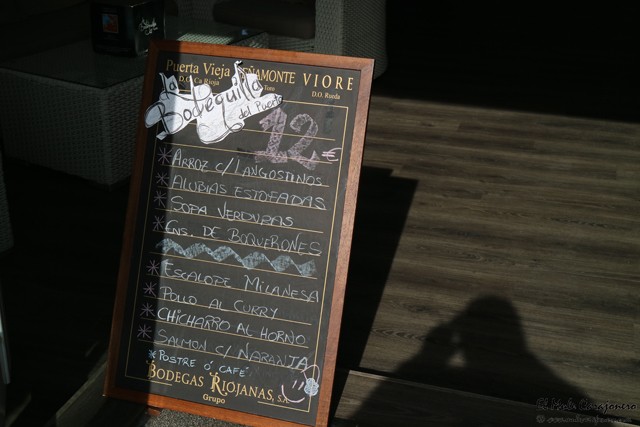 Puerta Vieja PEÑAMONTE VIORE
D.O. Ca Rioja Toro D.O. Rueda
La
Bodeguilla
del Puerto
12 €
* ARROZ C/LANGOSTINOS
* ALUBIAS ESTOFADAS
* SOPA VERDURAS
* ENS. DE BOQUERONES
* ESCALOPE MILANESA
* POLLO AL CURRY
* CHICHARRO AL HORNO
* SALMON C/ NARANJA
* POSTRE Ó CAFÉ
BODEGAS RIOJANAS, S.A.
Grupo
El Malo Corajonero